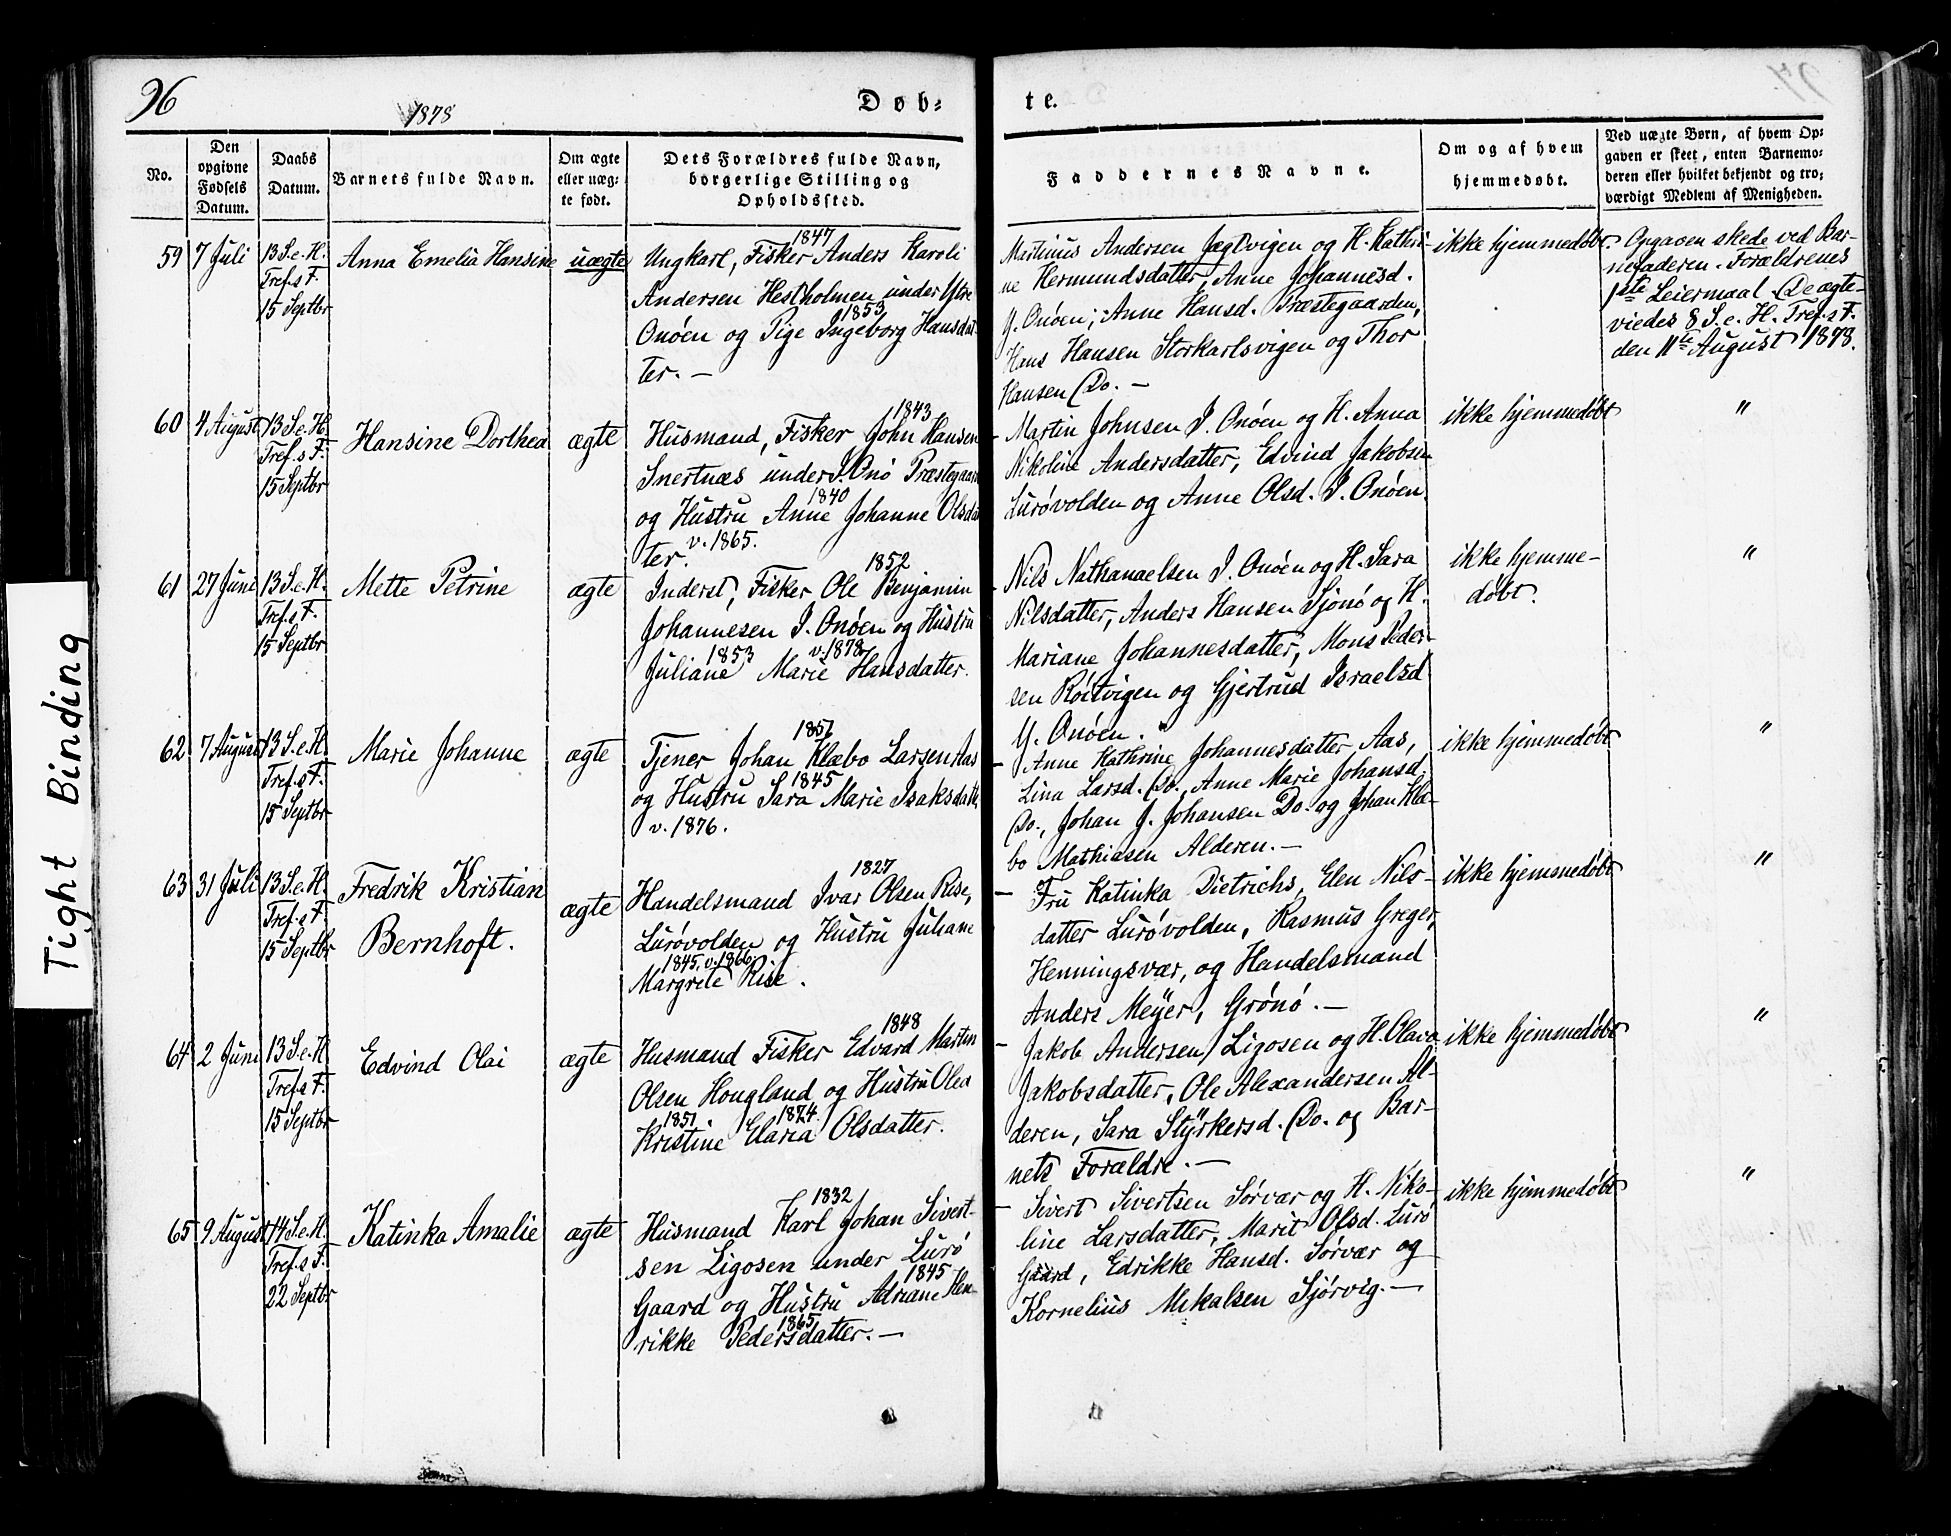 96
1878
Døb-
te.
No.
Den
opgivne
Fødsels
Datum.
Daabs
Datum.
Barnets fulde Navn.
Om ægte
eller uæg-
te født.
Dets Forældres fulde Navn,
borgerlige Stilling og
Opholdssted.
Faddernes Navne.
Om og af hvem
hjemmedøbt.
Ved uægte Børn, af hvem Op-
gaven er skeet, enten Barnemo-
deren eller hvilket bekjendt og tro-
værdigt Medlem af Menigheden.
59
7 Juli
13 S. e. H.
Tref.s F.
15 Septbr
Anna Emelia Hansine
uægte
1847
Ungkarl, Fisker Anders Karoli
Andersen Hestholmen under Ytre
1853
Onöen og Pige Ingeborg Hansdat-
ter. —
Martinus Andersen Jægtvigen og H. Kathri-
ne Hermundsdatter, Anne Johannesd.
Y. Onöen; Anne Hansd. Præstegaarden,
Hans Hansen Storkarlsvigen og Thor
Hansen Do. —
ikke hjemmedøbt
Opgaven skede ved Bar-
nefaderen. Forældrenes
1ste Leiermaal. De ægte-
viedes 8 S. e. H. Tref. s F.
den 11te August 1878.
60
4 August
13 S. e. H.
Tref. s F.
15 Septbr
Hansine Dorthea
ægte
1843
Husmand, Fisker John Hansen
Snertnæs under I. Onö Præstegaard
1840
og Hustru Anne Johanne Olsdat-
ter. v. 1865.
— Martin Johnsen I. Onöen og H. Anna
Nikoline Andersdatter, Edvind Jakobsen
Luróvolden og Anne Olsd. I. Onöen.
ikke hjemmedøbt
"
61
27 Juni
13 S. e. H.
Tref. s F.
15 Septbr
Mette Petrine
ægte
1852
Inderst, Fisker Ole Benjamin
Johannesen I. Onöen og Hustru
1853 v. 1878
Juliane Marie Hansdatter.
— Nils Nathanaelsen I. Onöen og H. Sara
Nilsdatter, Anders Hansen Sjonö og H.
Mariane Johannesdatter, Mons Peder-
sen Röitvigen og Gjertrud Israelsd
Y. Onöen.
ikke hjemme-
døbt.
"
62
7 August
13 S. e. H.
Tref. s F.
15 Septbr
Marie Johanne
ægte
1851
Tjener Johan Klæbo Larsen Aas
1845
og Hustru Sara Marie Isaksdatt.
v. 1876.
— Anne Kathrine Johannesdatter Aas,
Lina Larsd. Do., Anne Marie Johansd.
Do., Johan J. Johansen Do. og Johan Klæ-
bo Mathiasen Alderen. —
ikke hjemmedøbt
"
63
31 Juli
13 S. e. H.
Tref. s F.
15 Septbr
Fredrik Kristian
Bernhoft.
ægte
1827
Handelsmand Ivar Olsen Rise,
Luróvolden og Hustru Juliane
1845. v. 1866
Margrete Rise.
— Fru Katinka Dietrichs, Elen Nils-
datter Luróvolden, Rasmus Greger,
Henningsvær, og Handelsmand
Anders Meÿer, Grónó. —
ikke hjemmedøbt
"
64
2 Juni
13 S. e. H.
Tref. s F.
15 Septbr
Edvind Olai
ægte
1848
Husmand Fisker Edvard Martin
Olsen Hougland og Hustru Olea
1851 1874.
Kristine Elaria Olsdatter.
— Jakob Andersen Ligosen og H. Olava
Jakobsdatter, Ole Alexandersen Al-
deren, Sara Stÿrkersd. Do. og Bar-
nets Forældre. —
ikke hjemmedøbt
"
65
9 August
14 S. e. H.
Tref. s F.
22 Septbr
Katinka Amalie
ægte
1832
Husmand Karl Johan Sivert-
sen Ligosen under Luró
1845
Gaard og Hustru Adriane Hen-
1865
rikke Pedersdatter. —
— Sivert Sivertsen Sørvær og H. Niko-
line Larsdatter, Marit Olsd. Luró
Gaard, Edrikke Hansd. Sørvær og
Kornelius Mikalsen Sjörvig. —
ikke hjemmedøbt
"
Tight Binding